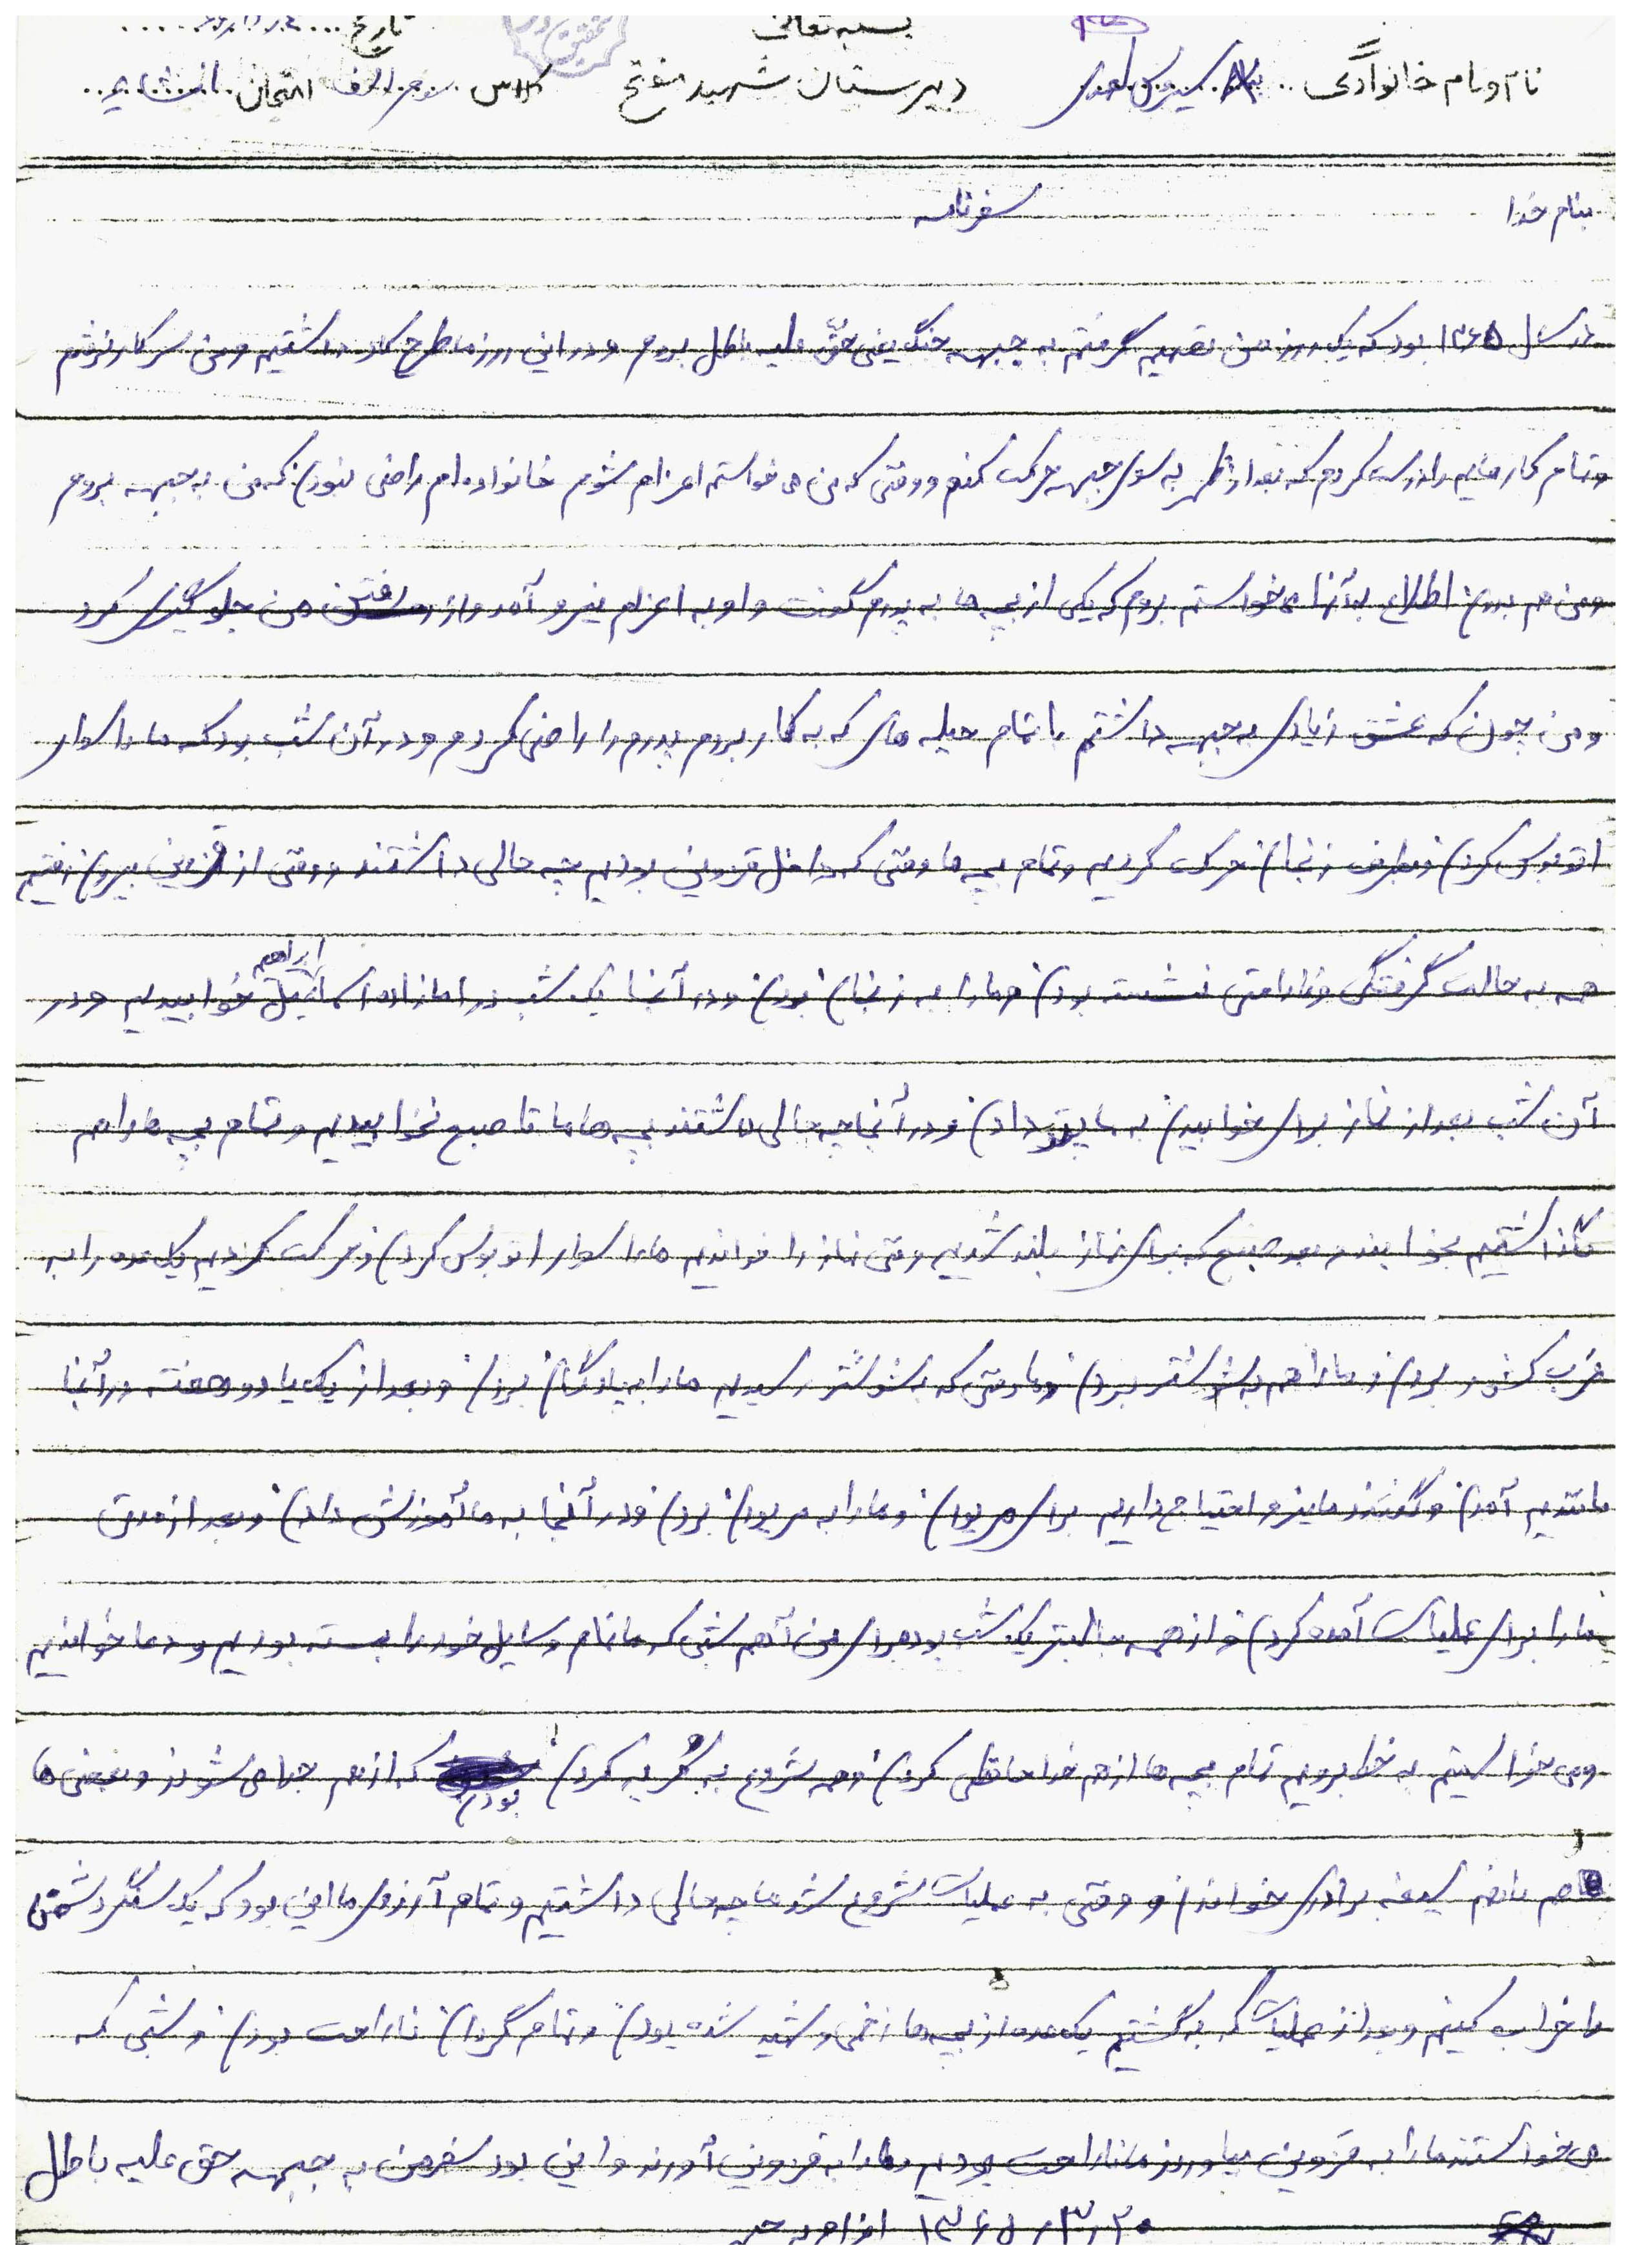 بسمه تعالی
تاریخ
نام و نام خانوادگی
دبیرستان شهید مفتح
کلاس سوم الف امتحان انشاء
بنام خدا
سفرنامه
در سال ۱۳۶۵ بود که یک روز من تصمیم گرفتم به جبهه جنگ یعنی حقّ علیه باطل بروم و در این روز ما طرح کاد داشتیم و من سر کار نرفتم
و تمام کارهایم را درست کردم که بعد از ظهر به سوی جبهه حرکت کنم و وقتی که من می خواستم اعزام شوم خانواده ام راضی نبودن که من به جبهه بروم
و من هم بدون اطلاع به آنها می خواستم بروم که یکی از بچه ها به پدرم گفت و او به اعزام نیرو آمد و از رفتن من جلوگیری کرد
و من چون که عشق زیادی به جبهه داشتم با تمام حیله های که به کار بردم پدرم را راضی کردم و در آن شب بود که ما را سوار
اتوبوس کردن و بطرف زنجان حرکت کردیم و تمام بچه ها وقتی که داخل قزوین بودیم چه حالی داشتند و وقتی از قزوین بیرون رفتیم
همه به حالت گرفتگی و ناراحتی نشسته بودن و ما را به زنجان بردن و در آنجا یک شب در امازاده ابراهیم خوابیدیم و در
آن شب بعد از نماز برای خوابیدن به ما پتو دادن و در آنجا چه حالی داشتند بچه ها ما تا صبح نخوابیدیم و تمام بچه ها را هم
نگذاشتیم بخوابند و بعد صبح که برای نماز بلند شدیم وقتی نماز را خواندیم ما را سوار اتوبوس کردن و حرکت کردیم یک عده را به
غرب کشور بردن و ما را هم به شوشتر بردن و ما وقتی که به شوشتر رسیدیم ما را به پادگان بردن و بعد از یک یا دو هفته در آنجا
ماندیم آمدن و گفتند ما نیرو احتیاج داریم برای مریوان و ما را به مریوان بردن و در آنجا به ما آموزش دادن و بعد از مدتی
ما را برای عملیات آمده کردن و از همه جالبتر یک شب بود برای من آنهم شبی که ما تمام وسایل خود را بسته بودیم و دعا خواندیم
و می خواستیم به خط برویم تمام بچه ها از هم خدا حافظی کردن و همه شروع به گریه کردن بودن که از هم جدا می شوند و بعضی ها
هم با هم سیغه برادری خواندن و وقتی به عملیات شروع شد ما چه حالی داشتیم و تمام آرزوی ما این بود که یک سنگر دشمن
را خراب کنیم و بعد از عملیات که برگشتیم یک عده از بچه ها زخمی و شهید شده بودن و تمام گردان ناراحت بودن و شبی که
می خواستند ما را به قزوین بیاورند ما ناراحت بودیم و ما را به قزوین آوردند و این بود سفر من به جبهه حق علیه باطل
۱۳۶۵/۳/۲۰